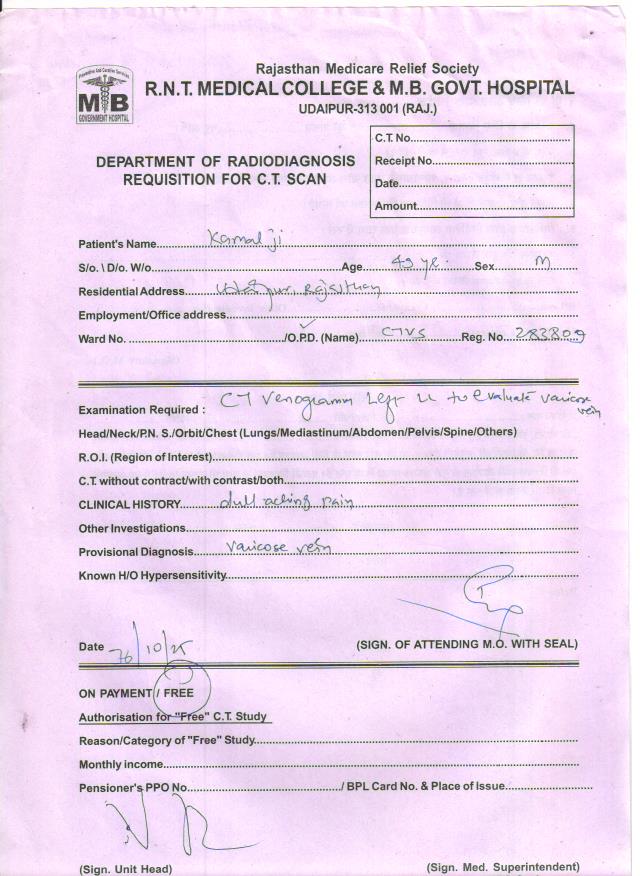 Preventive And Curative Services
MB
GOVERNMENT HOSPITAL
Rajasthan Medicare Relief Society
R.N.T. MEDICAL COLLEGE & M.B. GOVT. HOSPITAL
UDAIPUR-313 001 (RAJ.)
C.T. No.
Receipt No.
Date
Amount
DEPARTMENT OF RADIODIAGNOSIS
REQUISITION FOR C.T. SCAN
Patient's Name Kamal ji
S/o. \ D/o. W/o Age 49 yr. Sex M
Residential Address Udaipur, Rajasthan
Employment/Office address
Ward No. /O.P.D. (Name) CTVS Reg. No 283809
Examination Required : CT Venogram Left LL to evaluate varicose vein
Head/Neck/P.N. S./Orbit/Chest (Lungs/Mediastinum/Abdomen/Pelvis/Spine/Others)
R.O.I. (Region of Interest)
C.T. without contract/with contrast/both
CLINICAL HISTORY dull aching pain
Other Investigations
Provisional Diagnosis varicose vein
Known H/O Hypersensitivity
Date /10/25 (SIGN. OF ATTENDING M.O. WITH SEAL)
ON PAYMENT / FREE
Authorisation for "Free" C.T. Study
Reason/Category of "Free" Study
Monthly income
Pensioner's PPO No / BPL Card No. & Place of Issue
(Sign. Unit Head) (Sign. Med. Superintendent)